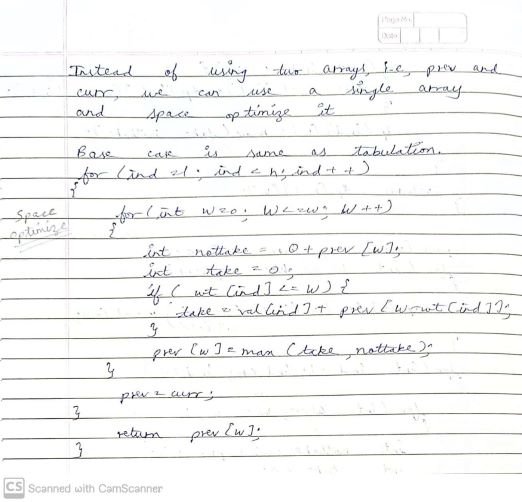 Page No.
Date
Instead of using two arrays, i.e, prev and
curr, we can use a single array
and space optimize it
Base case is same as tabulation.
for (ind =1; ind < n; ind ++)
{
Space optimize
for (int w=0; w<=w; w++)
{
int nottake = 0 + prev [w];
int take = 0;
if ( wt [ind] <= w) {
take = val[ind] + prev [w-wt[ind]];
}
prev [w] = max (take, nottake);
}
prev = curr;
}
return prev [w];
}
CS Scanned with CamScanner